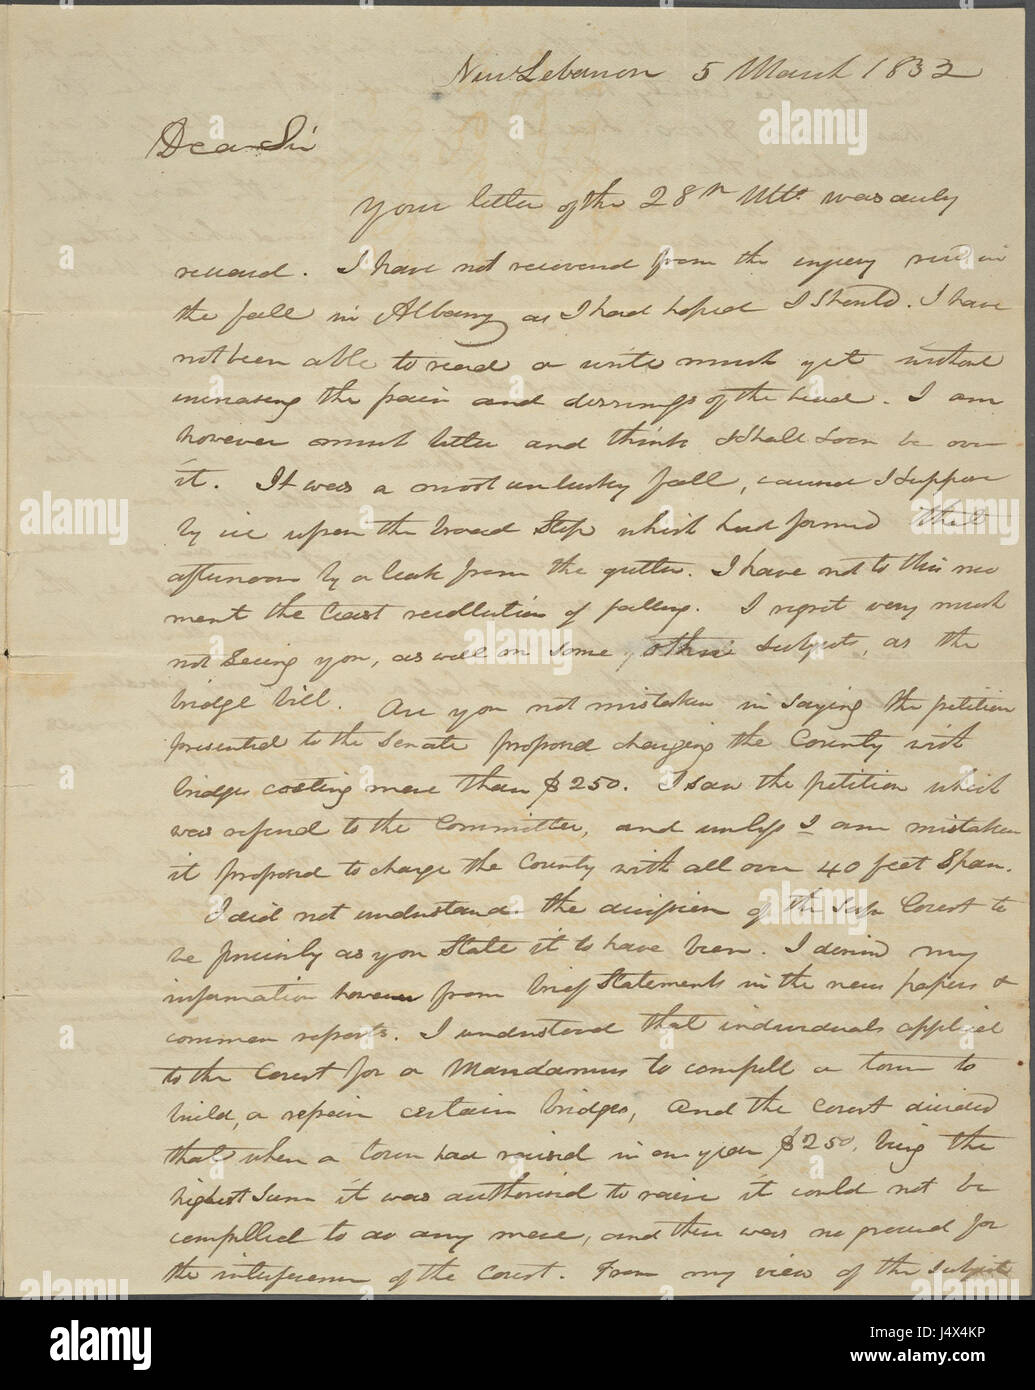 New Lebanon 5 March 1832
Dear Sir
Your letter of the 28th Ulto. was duly
received. I have not recovered from the injury recd in
the fall in Albany as I had hoped I should. I have
not been able to read or write much yet without
increasing the pain and dizziness of the head. I am
however much better and think I shall soon be over
it. It was a most unlucky fall, caused I suppose
by ice upon the broad Step which had formed that
afternoon by a leak from the gutter. I have not to this mo
ment the least recollection of falling. I regret very much
not Seeing you, as well on some other subjects, as the
bridge bill. Are you not mistaken in saying the petition
presented to the Senate proposed charging the County with
bridges costing more than $250. I saw the petition which
was referred to the Committee, and unless I am mistaken
it proposed to charge the County with all over 40 feet Span.
I did not understand the decision of the Sup Court to
be precisely as you State it to have been. I derived my
information however from brief Statements in the news papers &
common reports. I understood that individuals applied
to the Court for a Mandamus to compell a town to
build, or repair certain bridges, and the Court decided
that when a town had raised in one year $250, being the
highest sum it was authorised to raise it could not be
compelled to do any more, and there was no ground for
the interference of the Court. From my view of the subject
a
alamy
alamy stock photo
J4X4KP
www.alamy.com